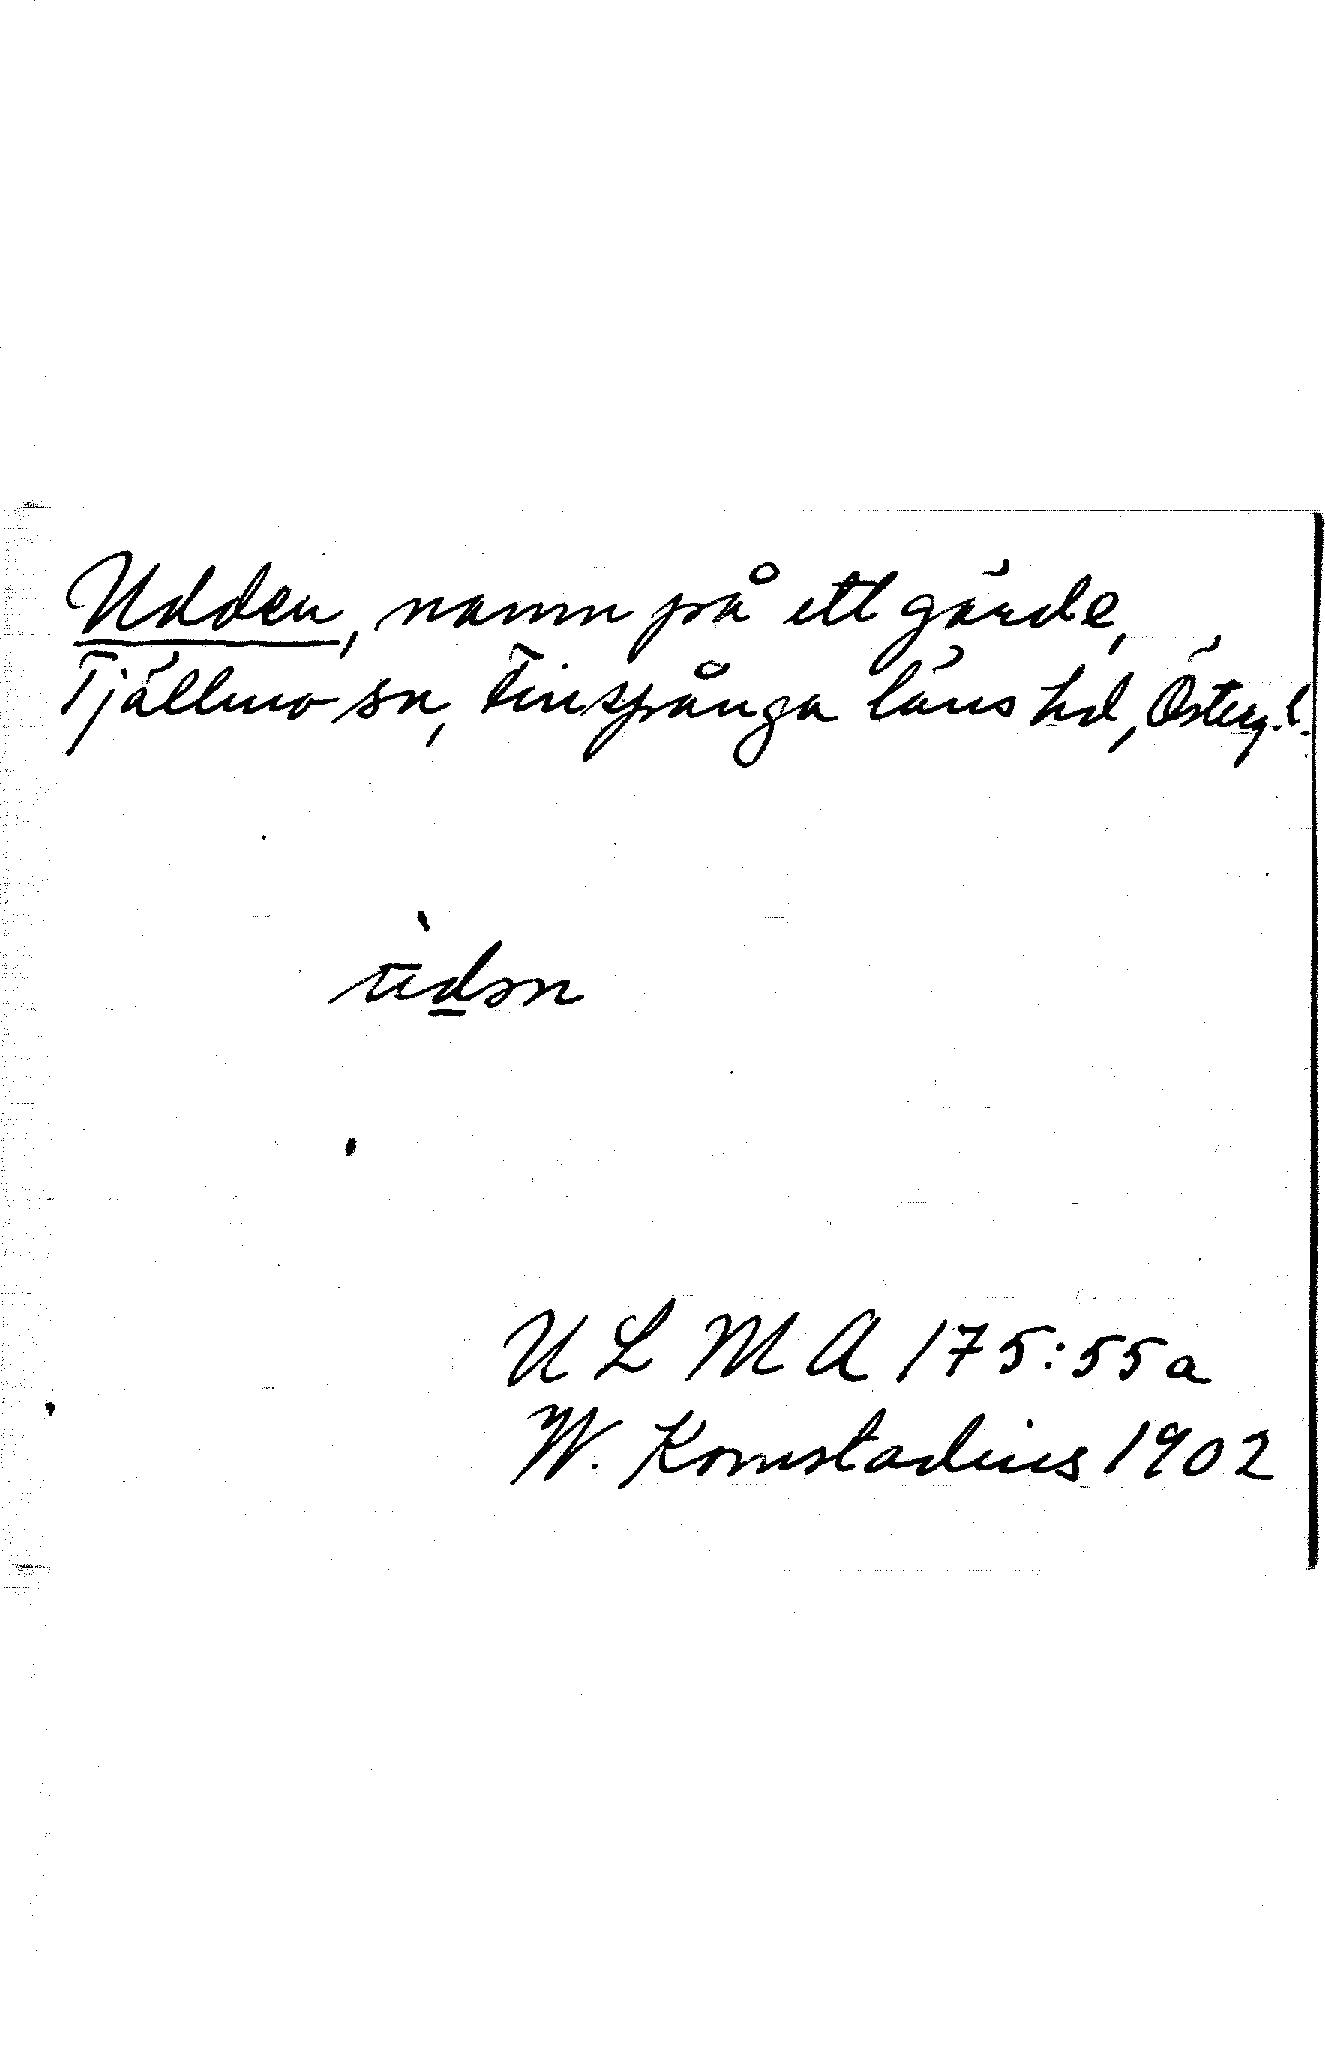 Udden, namn på ett gärde,
Tjällmo sn, Finspånga läns hd, Österg. l.
ùdən
U L M A 175:55a
W. Komstadius 1902